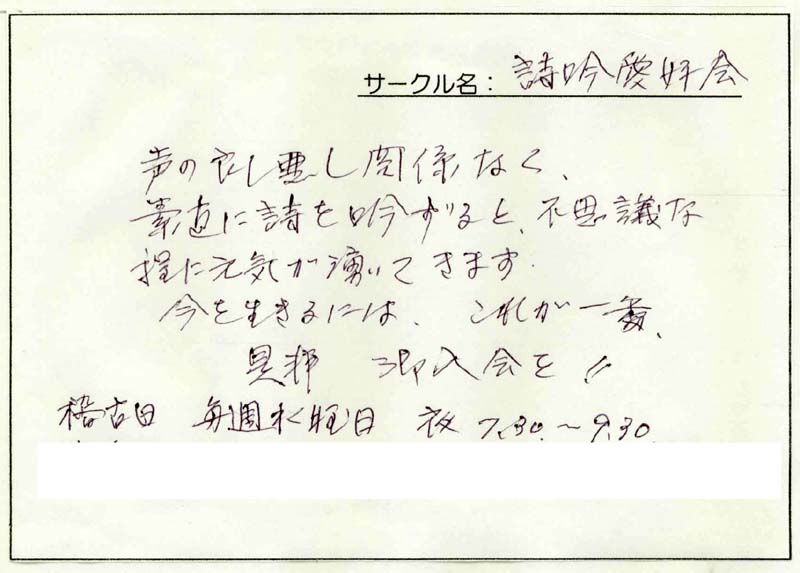 サークル名： 詩吟愛好会
声の良し悪し関係なく、
素直に詩を吟ずると、不思議な
程に元気が湧いてきます.
今を生きるには、これが一番、
是非 御入会を!!
稽古日 毎週水曜日 夜 7.30.～9.30